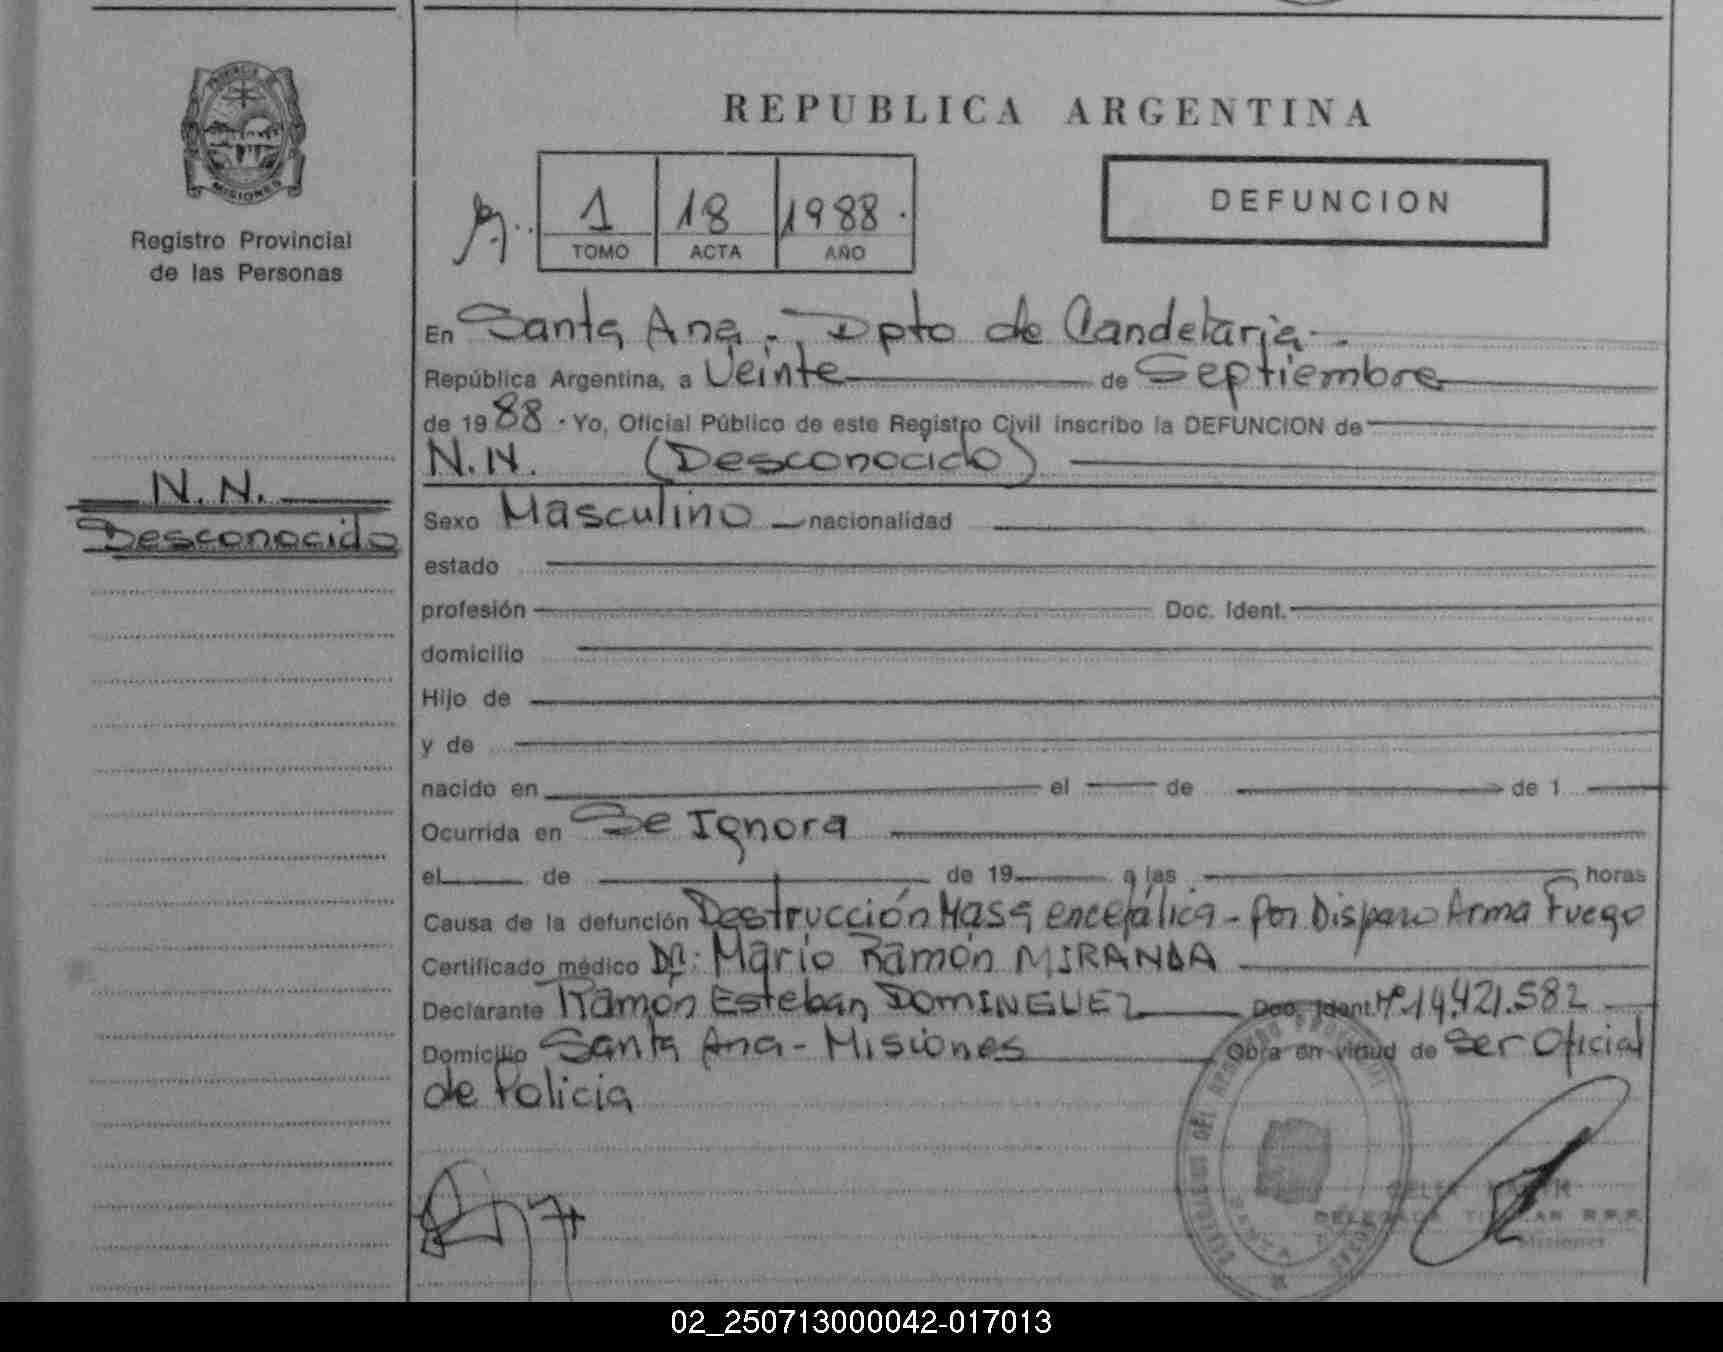 PROVINCIA DE
MISIONES
Registro Provincial
de las Personas
N. N.
Desconocido
REPUBLICA ARGENTINA
1 18 1988.
TOMO ACTA AÑO
DEFUNCION
En Santa Ana - Dpto de Candelaria -
República Argentina, a Veinte de Septiembre
de 1988. Yo, Oficial Público de este Registro Civil inscribo la DEFUNCION de
N.N. (Desconocido)
Sexo Masculino nacionalidad
estado
profesión Doc. Ident.
domicilio
Hijo de
y de
nacido en el de de 1
Ocurrida en Se Ignora
el de de 19 a las horas
Causa de la defunción Destrucción Masa encefálica - por Disparo Arma Fuego
Certificado médico Dr: Mario Ramón MIRANDA
Declarante Ramón Esteban DOMINGUEZ Doc. Ident. Nº 14.421.582
Domicilio Santa Ana - Misiones Obra en virtud de ser Oficial
de Policia
DELEGADA TITULAR R.P.P.
Misiones
02_250713000042-017013